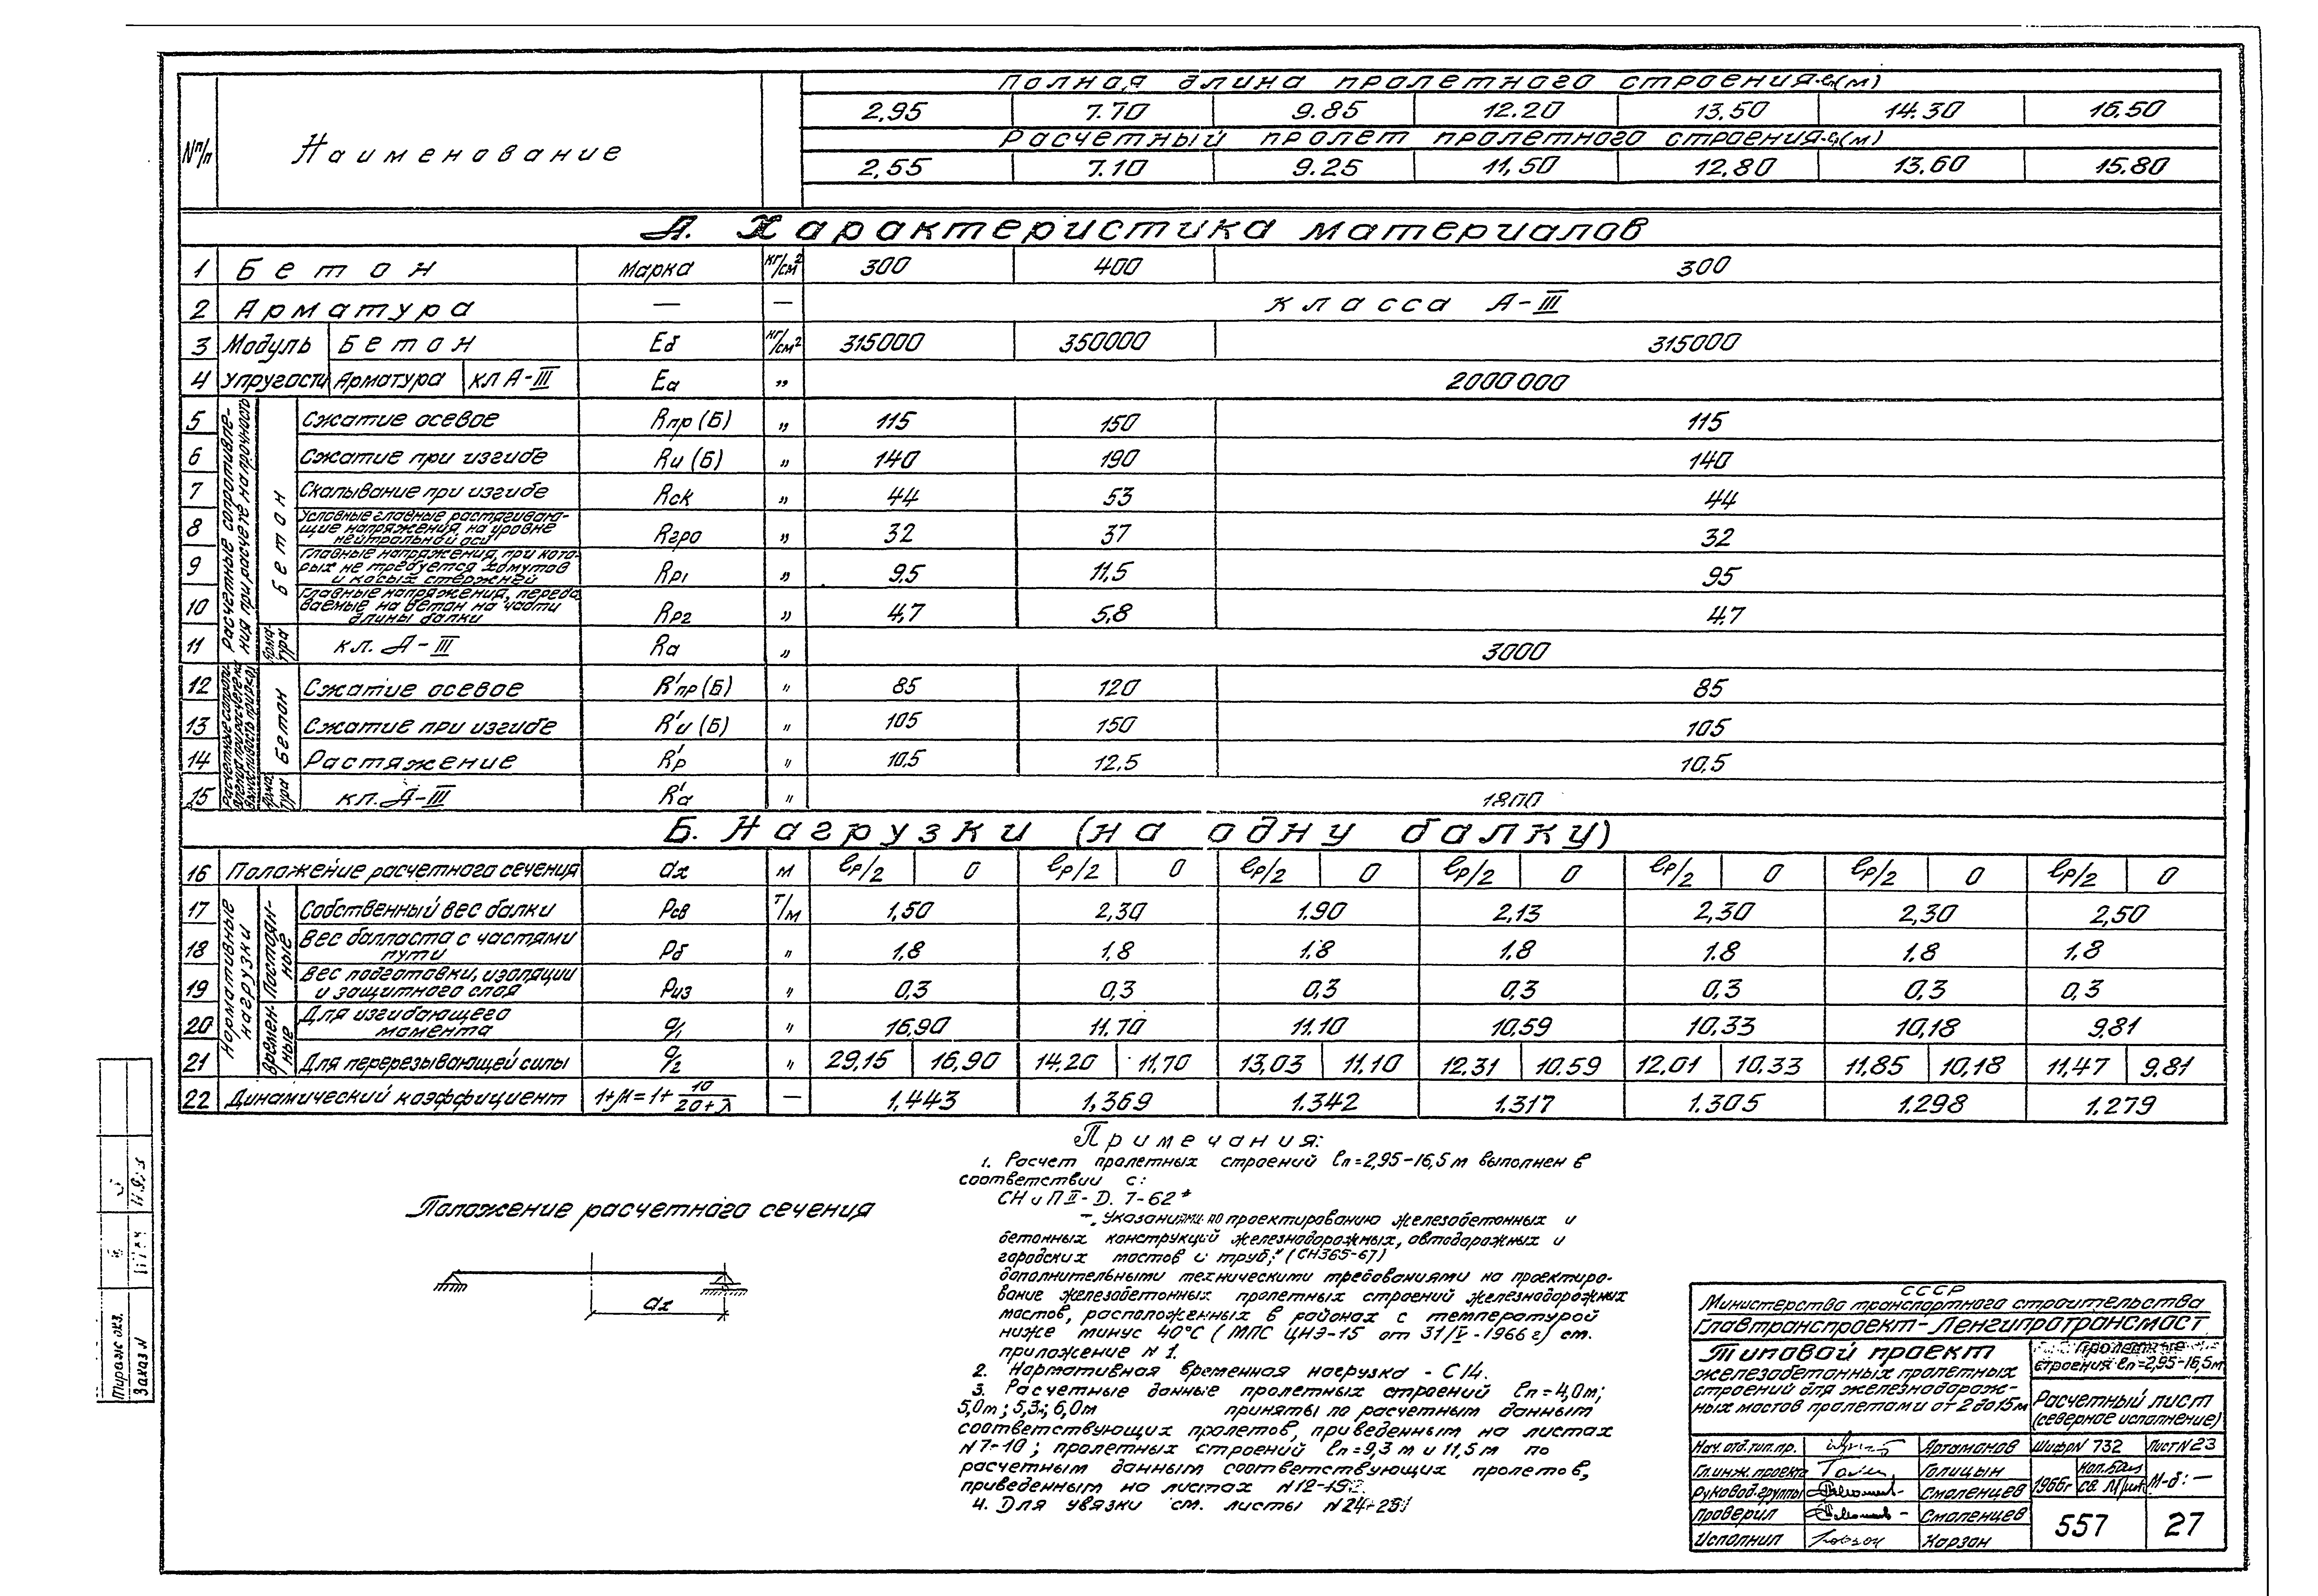 Полная длина пролетного строения-ℓп(м)
2,95 7.70 9.85 12.20 13,50 14.30 16,50
N п/п Наименование
Расчетный пролет пролетного строения-ℓр(м)
2,55 7.10 9.25 11,50 12,80 13.60 15.80
А. Характеристика материалов
1 Бетон Марка кг/см² 300 400 300
2 Арматура — — класса А-III
3 Модуль Бетон Еб кг/см² 315000 350000 315000
4 упругости Арматура кл А-III Еа " 2000000
Расчетные сопротивления при расчете на прочность
Бетон
5 Сжатие осевое Rпр (Б) " 115 150 115
6 Сжатие при изгибе Rи (Б) " 140 190 140
7 Скалывание при изгибе Rск " 44 53 44
8 Условные главные растягивающие напряжения на уровне нейтральной оси Rгро " 32 37 32
9 Главные напряжения, при которых не требуется хомутов и косых стержней Rр1 " 9,5 11,5 95
10 Главные напряжения, передаваемые на бетон на части длины балки Rр2 " 4,7 5,8 4,7
11 Арматура кл. А-III Rа " 3000
Бетон
12 Сжатие осевое R'пр (Б) " 85 120 85
13 Сжатие при изгибе R'и (Б) " 105 150 105
14 Растяжение R'р " 10,5 12,5 10,5
15 Арматура кл. А-III R'а " 1800
Б. Нагрузки (на одну балку)
16 Положение расчетного сечения ах м ℓр/2 0 ℓр/2 0 ℓр/2 0 ℓр/2 0 ℓр/2 0 ℓр/2 0 ℓр/2 0
Нормативные нагрузки
Постоянные
17 Собственный вес балки Рсв т/м 1,50 2,30 1.90 2,13 2,30 2,30 2,50
18 Вес балласта с частями пути Рб " 1,8 1,8 1,8 1,8 1.8 1,8 1,8
19 Вес подготовки, изоляции и защитного слоя Риз " 0,3 0,3 0,3 0,3 0,3 0,3 0,3
Временные
20 Для изгибающего момента q1 " 16,90 11.70 11.10 10,59 10,33 10,18 9,81
21 Для перерезывающей силы q2 " 29,15 16,90 14,20 11,70 13,03 11,10 12.31 10,59 12,01 10,33 11,85 10,18 11,47 9.81
22 Динамический коэффициент 1+μ=1+10/20+λ — 1,443 1,369 1.342 1.317 1.305 1.298 1.279
Положение расчетного сечения
ах
Примечания:
1. Расчет пролетных строений ℓп=2,95-16,5м выполнен в
соответствии с:
СНиП II-D. 7-62*
-„Указаниями по проектированию железобетонных и
бетонных конструкций железнодорожных, автодорожных и
городских мостов и труб;" (СН365-67)
дополнительными техническими требованиями на проектиро-
вание железобетонных пролетных строений железнодорожных
мостов, расположенных в районах с температурой
ниже минус 40°С (МПС ЦНЭ-15 от 31/V-1966г) см.
приложение N 1.
2. Нормативная временная нагрузка - С14.
3. Расчетные данные пролетных строений ℓп=4,0м;
5,0м; 5,3м; 6,0м приняты по расчетным данным
соответствующих пролетов, приведенным на листах
N7-10; пролетных строений ℓп=9,3м и 11,5м по
расчетным данным соответствующих пролетов,
приведенным на листах
4. Для увязки см. листы
СССР
Министерство транспортного строительства
Главтранспроект-Ленгипротрансмост
Типовой проект
железобетонных пролетных
строений для железнодорож-
ных мостов пролетами от 2 до 15м
Пролетные
строения ℓп=2,95-16,5м
Расчетный лист
(северное исполнение)
Нач. отд. тип. пр. Артамонов Шифр N 732 Лист N 23
Гл. инж. проекта Голицын
Руковод. группы Смоленцев 1966г М-б: —
Проверил Смоленцев
557 27
Исполнил Карзан
Тираж экз.
Заказ N